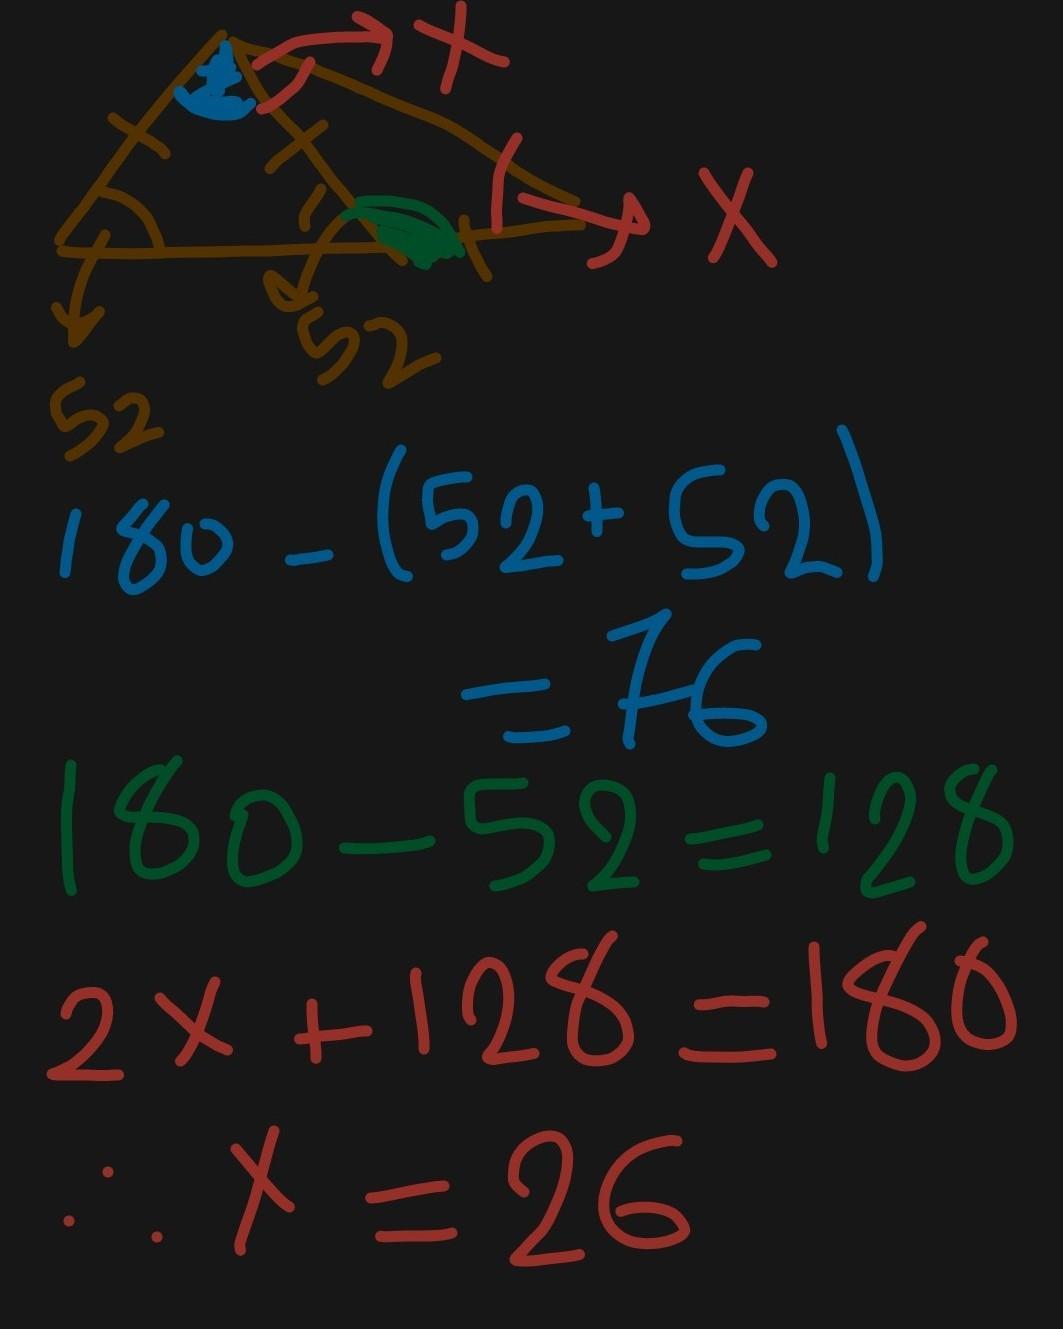 X
X
52
52
180 - (52 + 52)
= 76
180 - 52 = 128
2x + 128 = 180
∴ x = 26